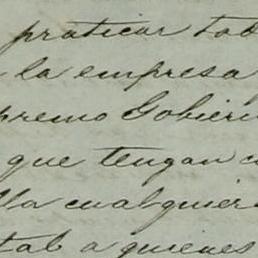 praticar tod
la empresa
premo Gobiern
que tengan c
lla cualquier
tal a quienes